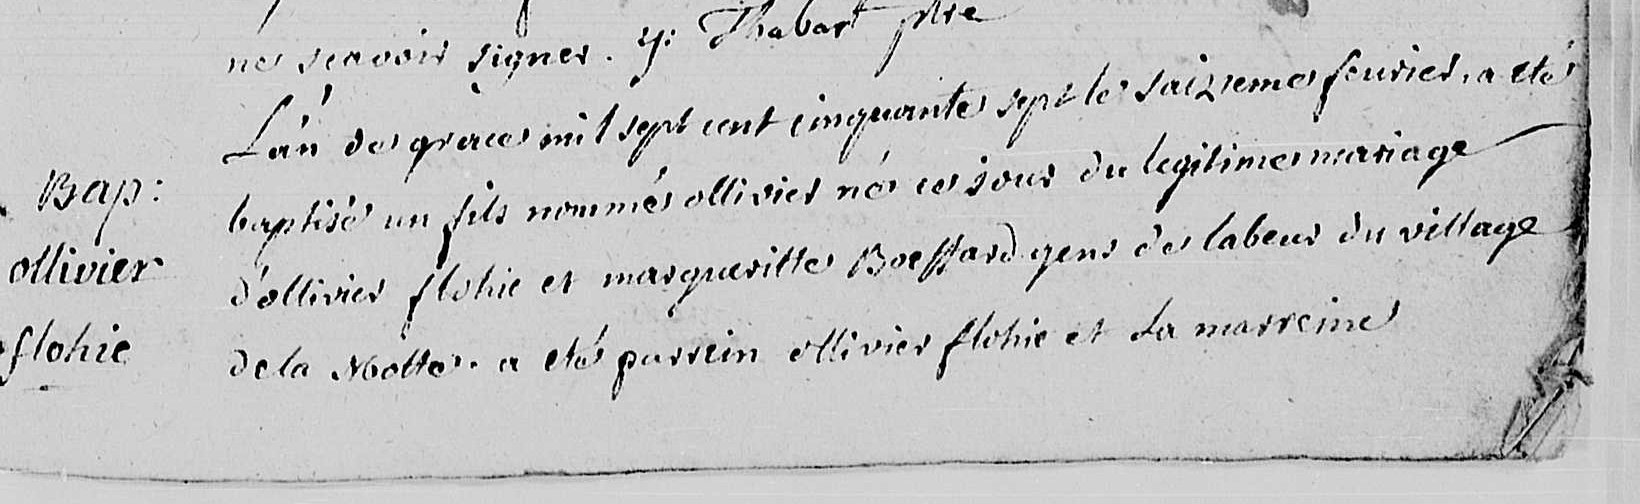 ne scavoir signer. y: Thabart ptre
L'an de grace mil sept cent cinquante sept le saizieme fevrier, a eté
Bap:
baptisé un fils nommé ollivier né ce jour du legitime mariage
ollivier
d'ollivier flohic et margueritte Boeffard gens de labeur du village
flohic
de la Motte. a eté parrein ollivier flohic et La marreine